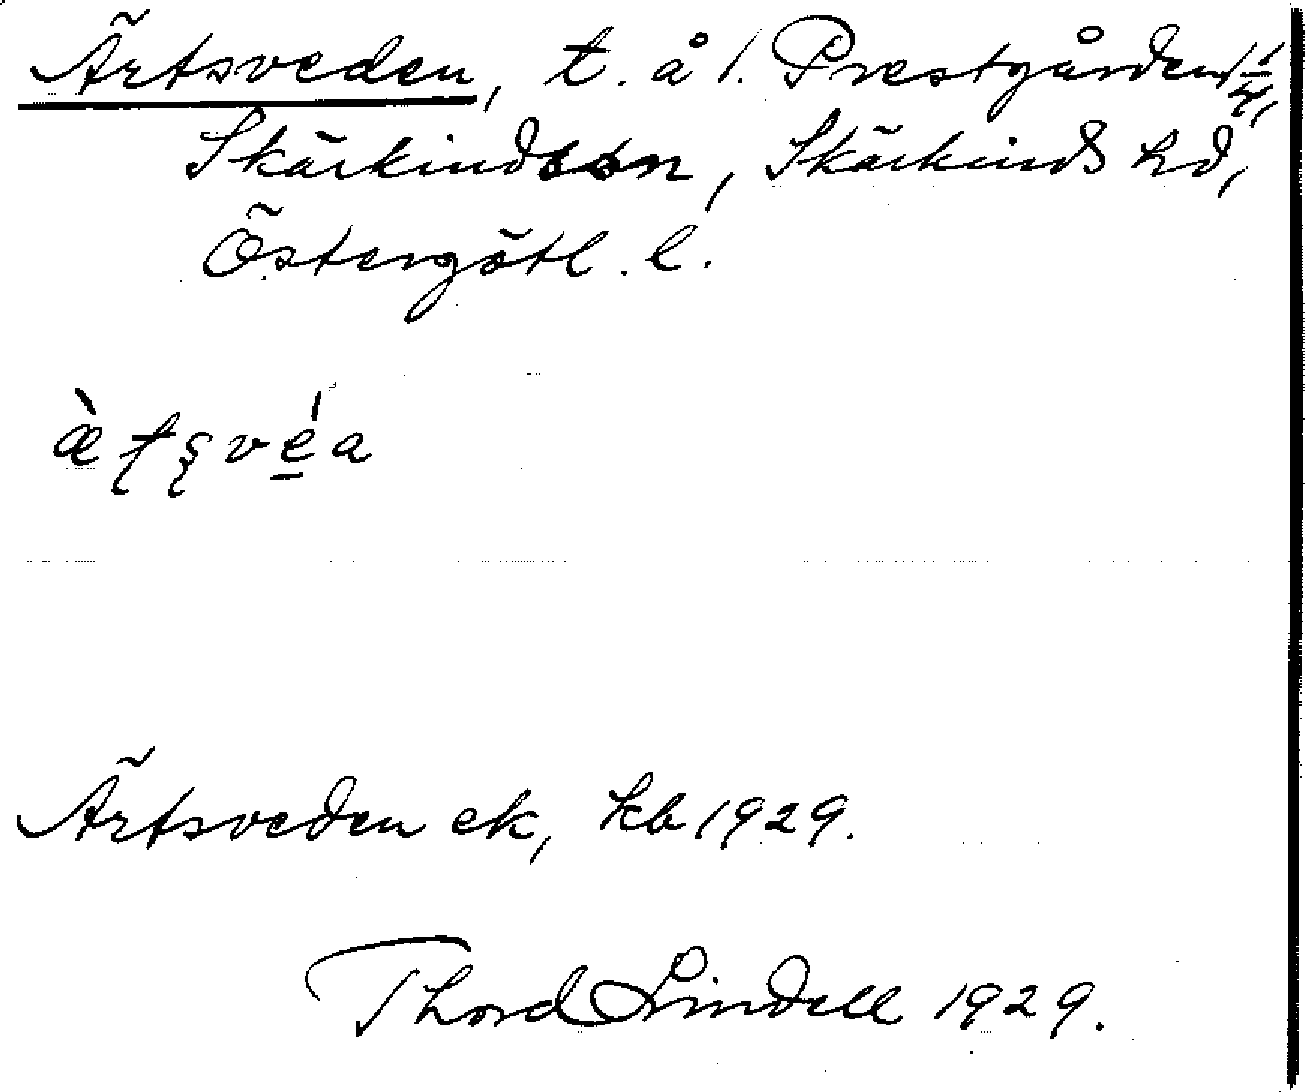 Ärtsveden, t. å /. Prestgården 1/4,
Skärkinds sn, Skärkinds hd,
Östergötl. l.
æ̀ʈʂvé̠a
Ärtsveden ek, kb 1929.
Thord Lindell 1929.